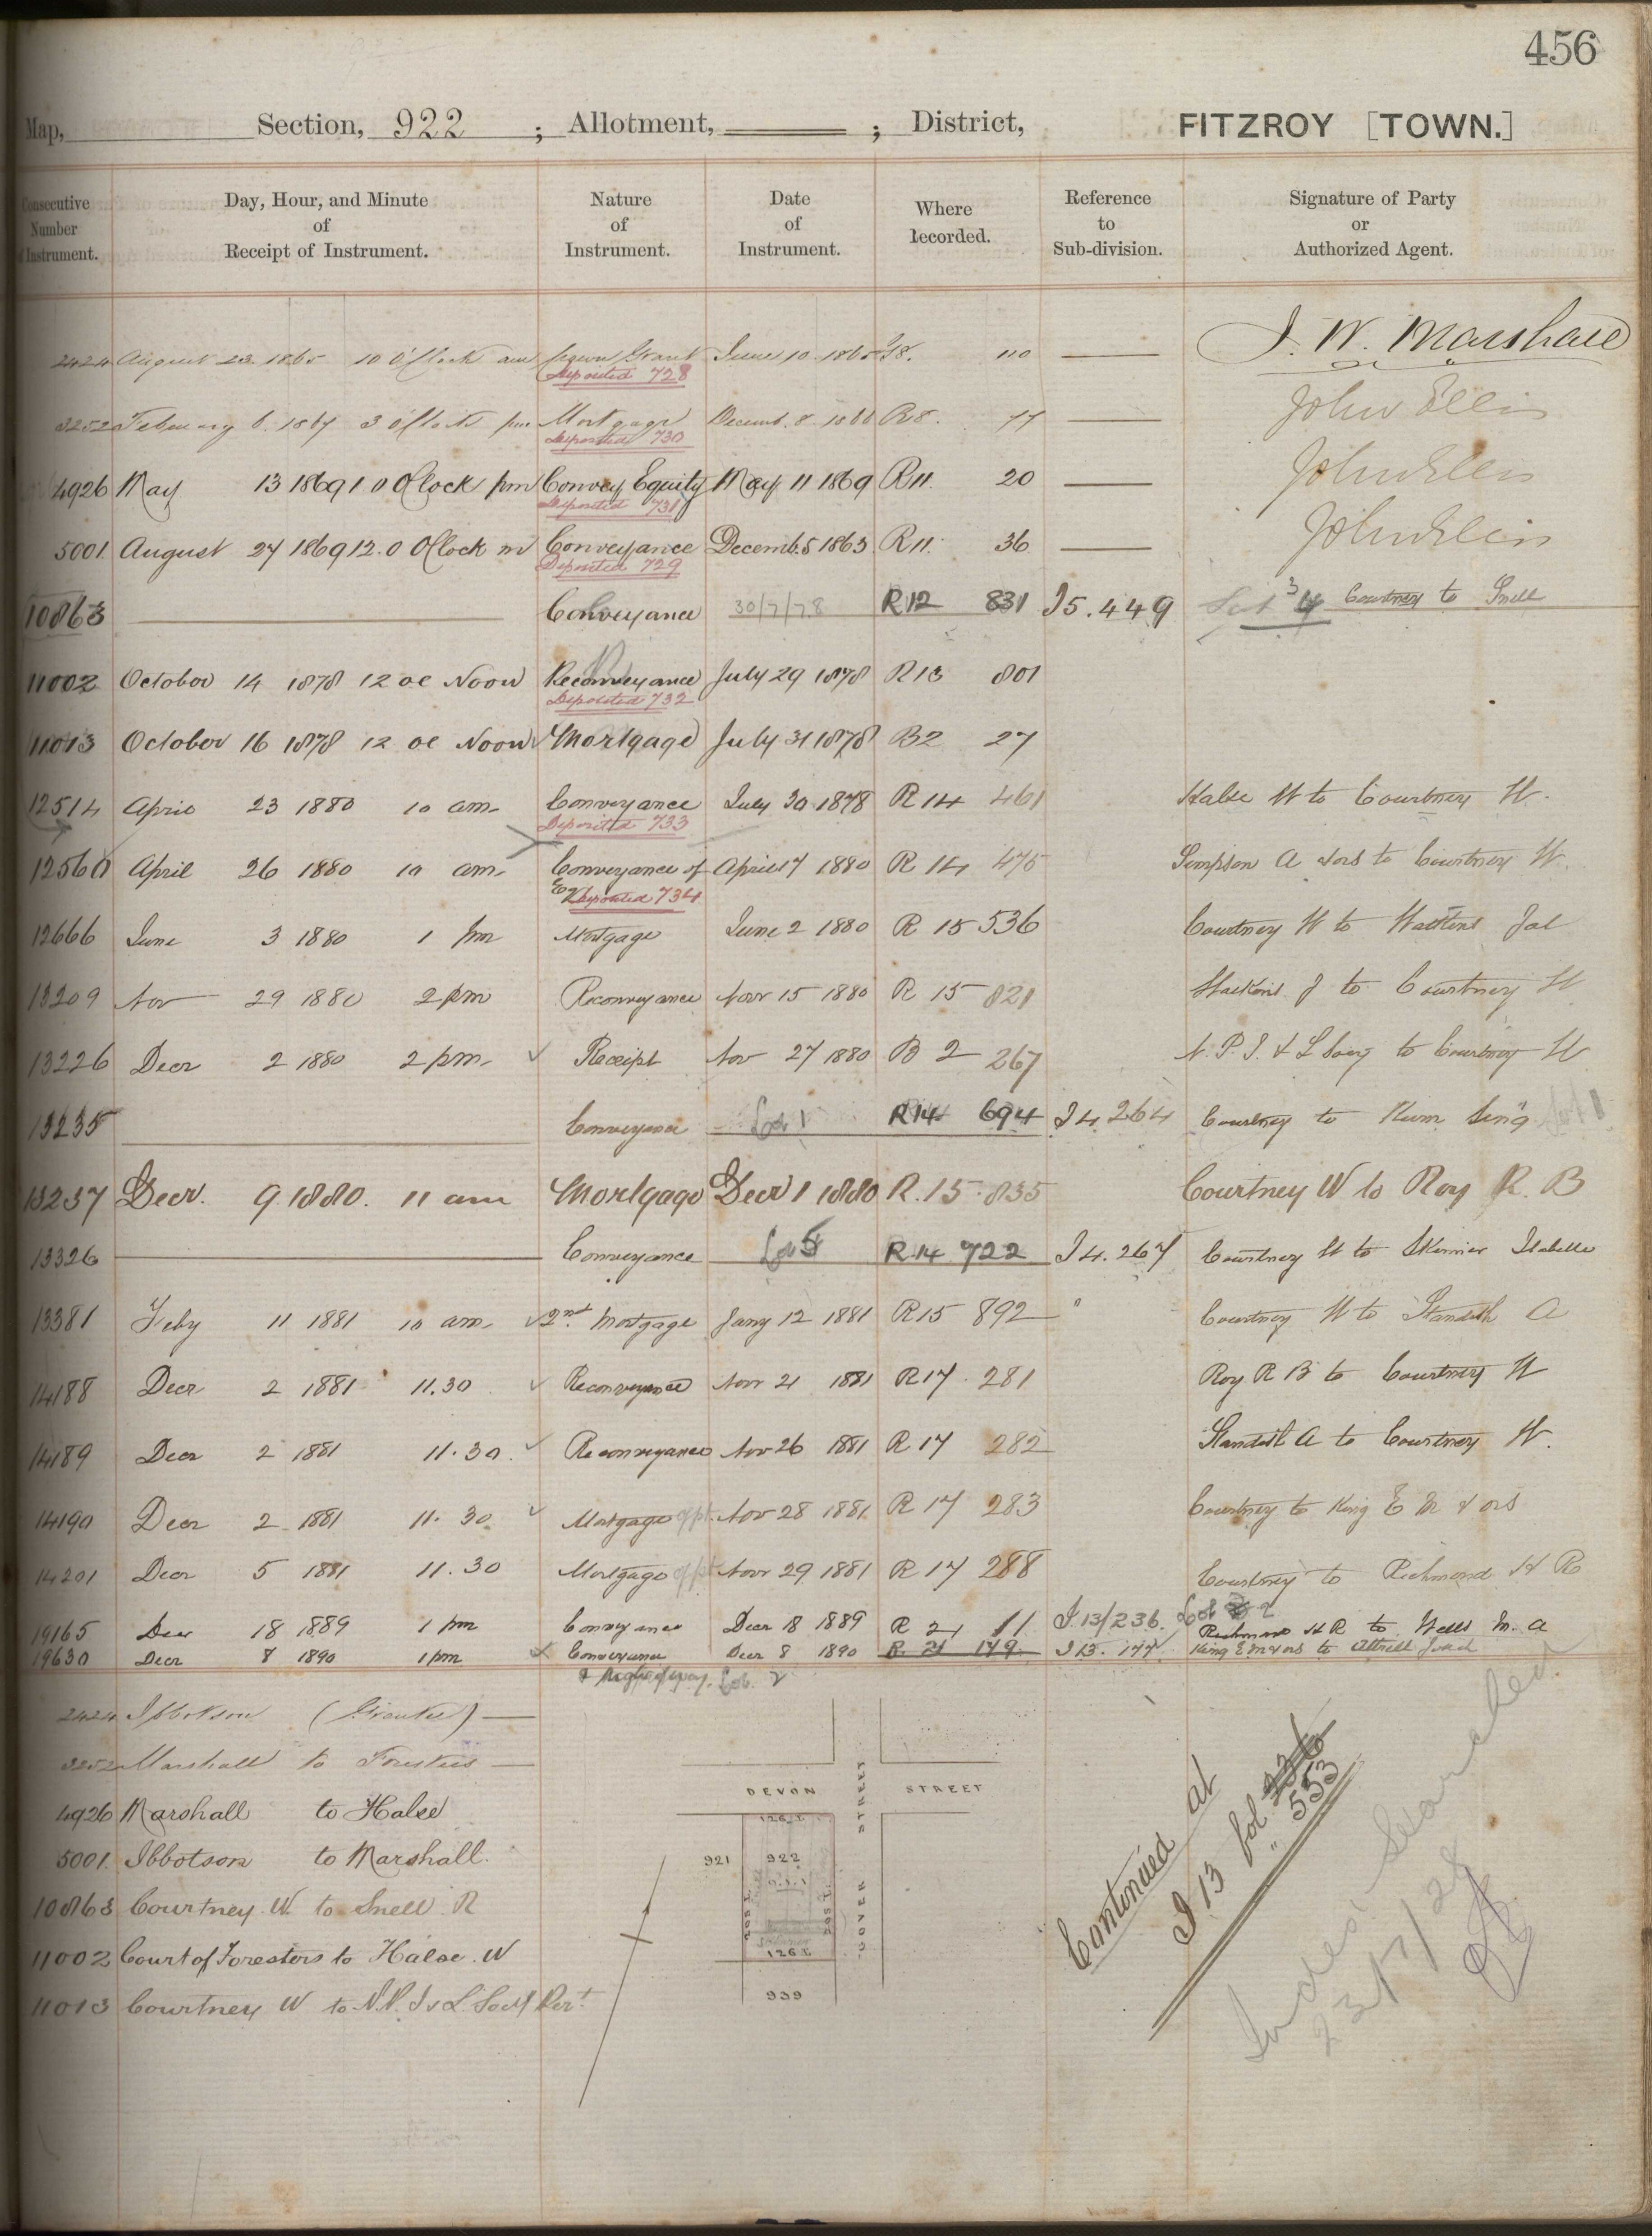 456
Map, Section, 922 ; Allotment, ; District, FITZROY [TOWN.]
Consecutive Number of Instrument.
Day, Hour, and Minute of Receipt of Instrument.
Nature of Instrument.
Date of Instrument.
Where Recorded.
Reference to Sub-division.
Signature of Party or Authorized Agent.
2424 August 23 1865 10 O'Clock am Crown Grant June 10 1865 110 J. W. Marshall
Deposited 728
3252 February 6 1867 3 o'Clock pm Mortgage Decemb. 8 1866 R8. 77 John Ellis
Deposited 730
4926 May 13 1869 1 0 O'Clock pm Convey Equity May 11 1869 R11. 20 John Ellis
Deposited 731
5001 August 27 1869 12.0 O'Clock m Conveyance Decemb. 5 1863 R11. 36 John Ellis
Deposited 729
10863 Conveyance 30/7/78 R12 831 I5.449 Courtney to Snell
11002 October 14 1878 12 oc Noon Reconveyance July 29 1878 R13 801
Deposited 732
11013 October 16 1878 12 oc Noon Mortgage July 31 1878 B2 27
12514 April 23 1880 10 am Conveyance July 30 1878 R14 461 Halse W to Courtney W.
Deposited 733
12560 April 26 1880 10 am Conveyance of April 17 1880 R 14 475 Simpson A & ors to Courtney W.
Deposited 734
12666 June 3 1880 1 pm Mortgage June 2 1880 R 15 536 Courtney W to
13209 Nov 29 1880 2 pm Reconveyance Novr 15 1880 R 15 821 to Courtney W
13226 Decr 2 1880 2 pm Receipt Nov 27 1880 B 2 267 N.P.I. & L Socy to Courtney W
13235 Conveyance Lot 1 R14 694 I4.264 Courtney to Kum Sing
13237 Decr. 9 1880. 11 am Mortgage Decr 1 1880 R.15.835 Courtney W to Roy R. B
13326 Conveyance Lot 5 R14 722 I4.267 Courtney W to Skinner Isabella
13381 Feby 11 1881 10 am 2nd Mortgage Jany 12 1881 R15 892 " Courtney W to Standish A
14188 Decr 2 1881 11.30 Reconveyance Novr 21 1881 R17. 281 Roy R B to Courtney W
14189 Decr 2 1881 11.30. Reconveyance Nov 26 1881 R 17 282 Standish A to Courtney W.
14190 Decr 2 1881 11.30 Mortgage of pt. Nov 28 1881 R 17 283 Courtney to King E M & ors
14201 Decr 5 1881 11.30 Mortgage of pt Novr 29 1881 R 17 288 Courtney to Richmond H R
19165 Decr 18 1889 1 pm Conveyance Decr 18 1889 R 21 11 I 13/236. Lot 2 Richmond H R to Wells M. A
19630 Decr 8 1890 1 pm Conveyance Decr 8 1890 R. 21 149. I 13. 177 King E M & ors to Attrill
& Right of way. Lot 2
2424 Ibbotson (Grantee)
3252 Marshall to Foresters
4926 Marshall to Halse
5001. Ibbotson to Marshall.
10863 Courtney. W. to Snell. R
11002 Court of Foresters to Halse. W
11013 Courtney W to N.P.I & L Socy Regt.
DEVON STREET
STREET
DOVER
126 L
921
922
0.1.1
Skinner
126 L
939
Continued at
I 13 fol 236
" 553
Index Searched
23/7/28